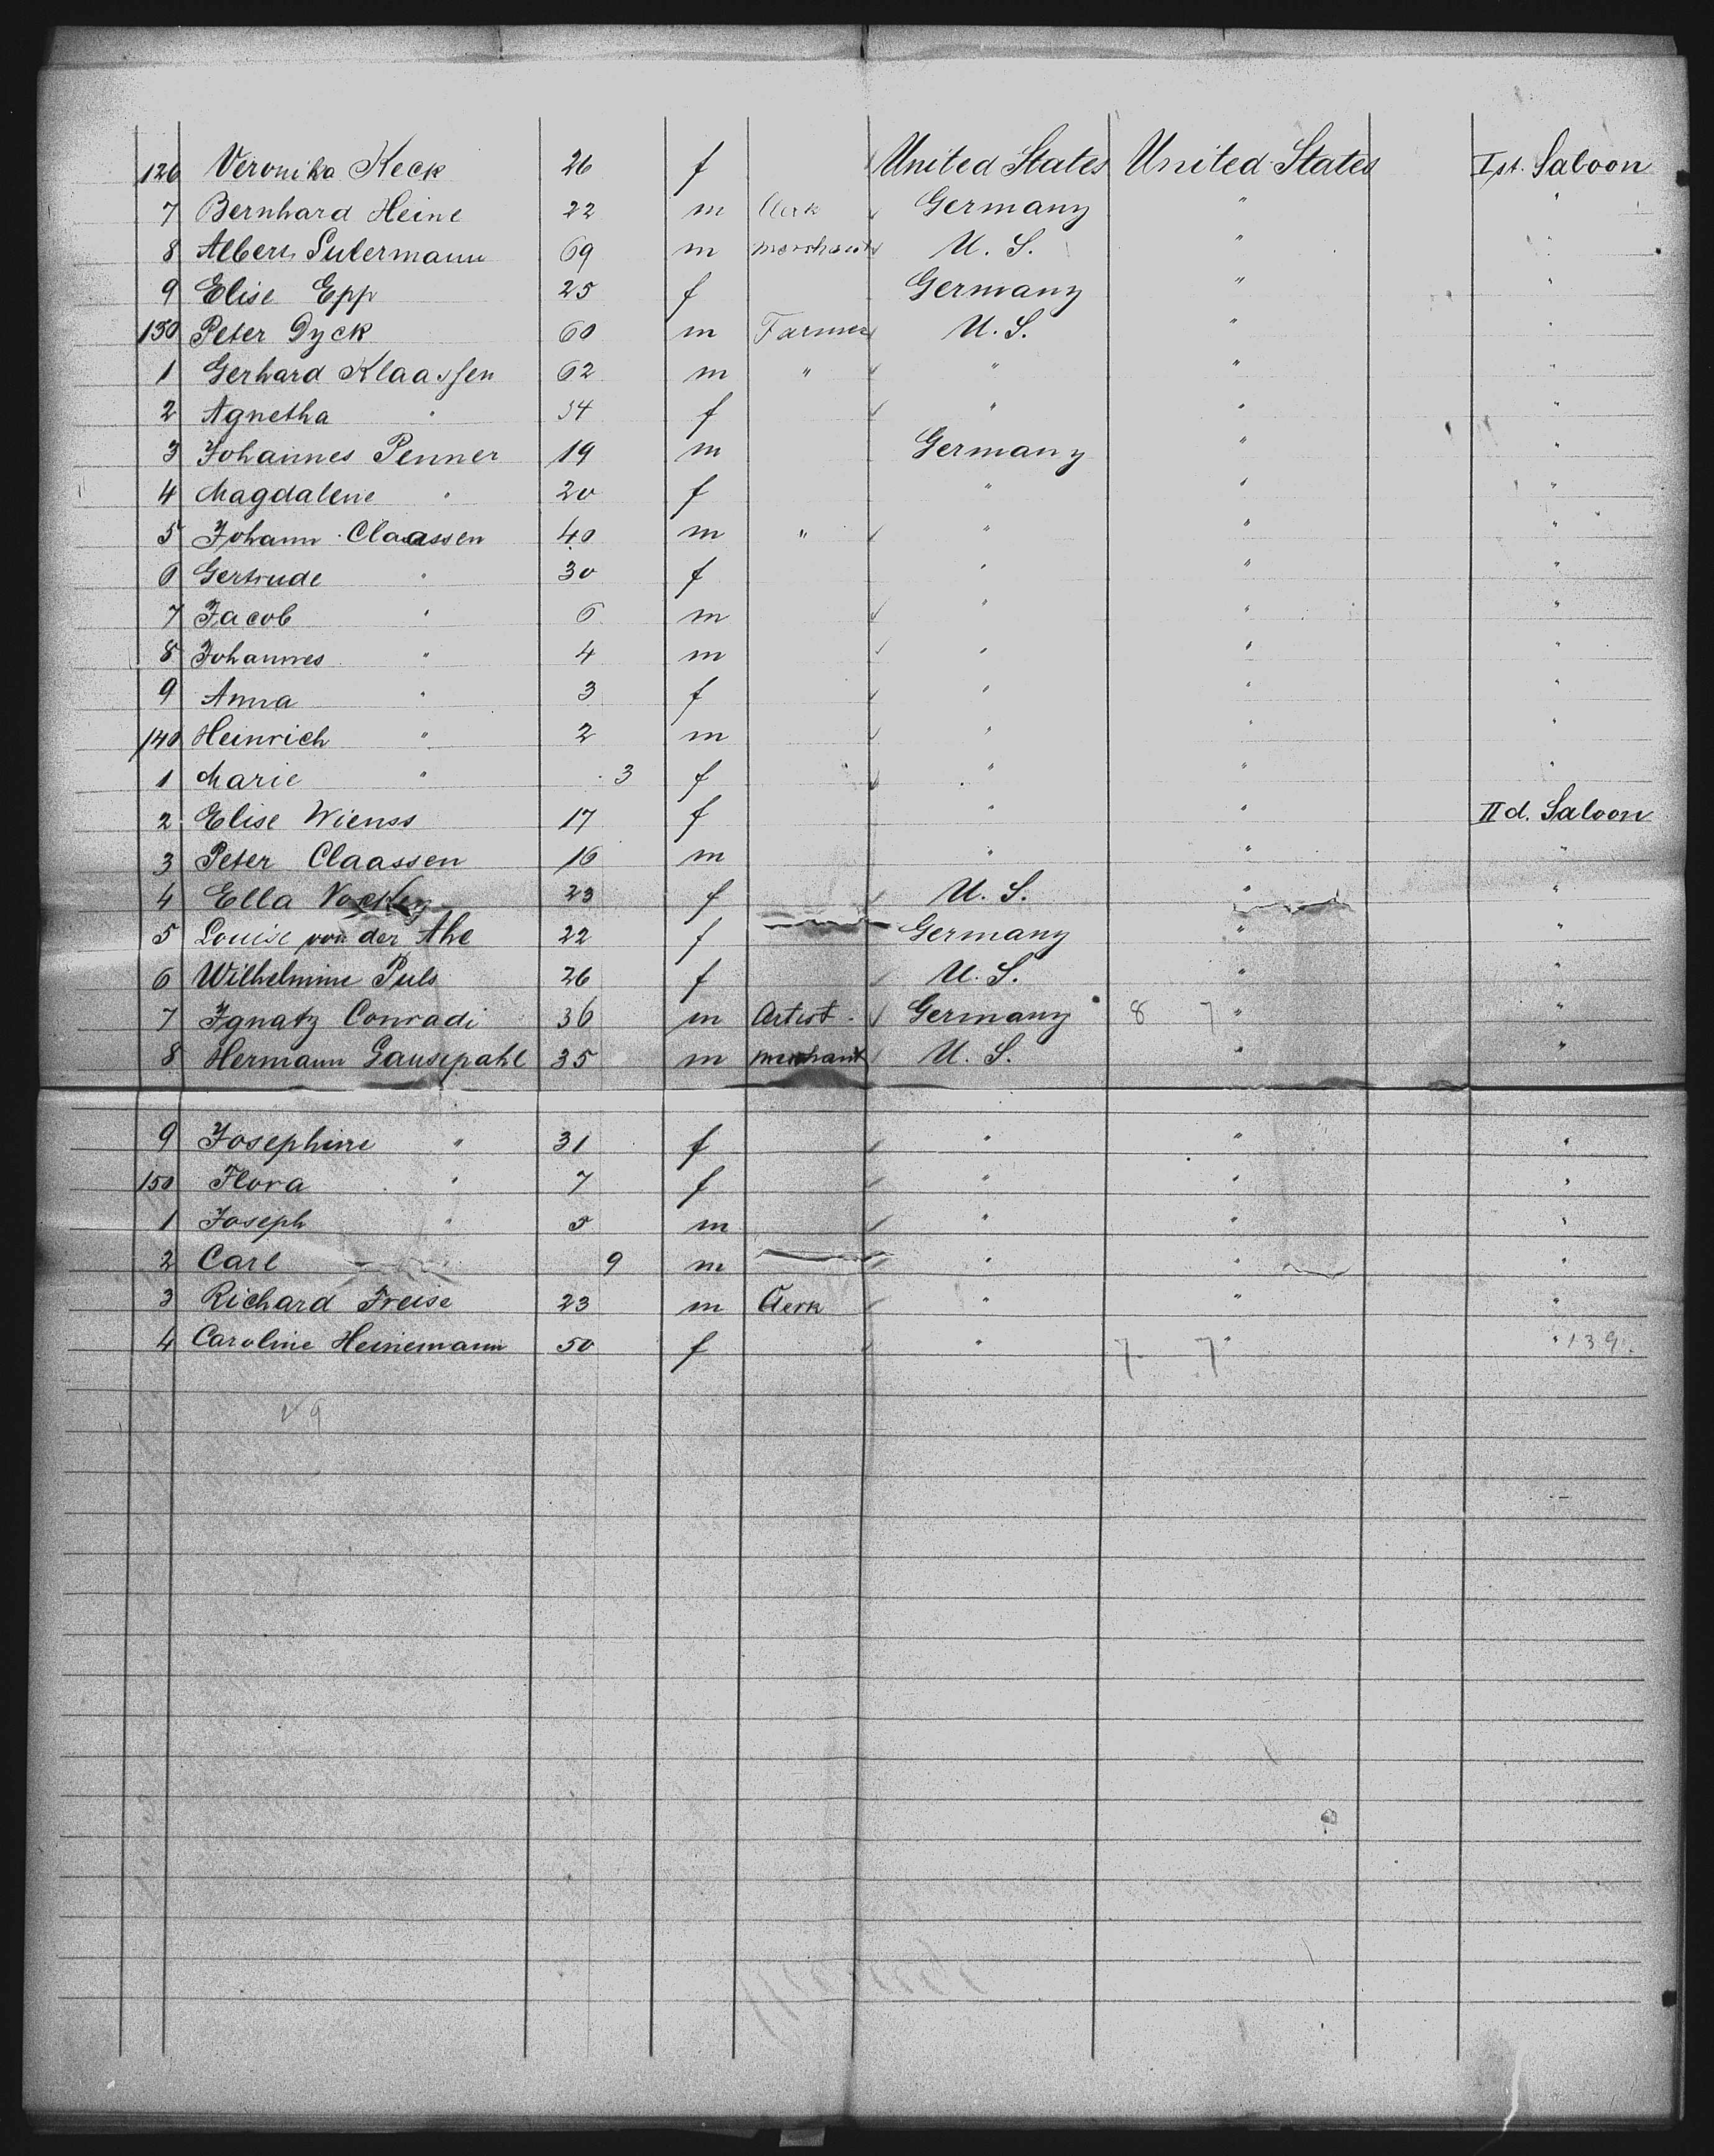 126 Veronika Keck 26 f United States United States Ist. Saloon
7 Bernhard Heine 22 m Clerk Germany " "
8 Albert Sutermann 69 m merchant U. S. " "
9 Elise Epp 25 f Germany " "
130 Peter Dyck 60 m Farmer U. S. " "
1 Gerhard Klaassen 62 m " " " "
2 Agnetha " 54 f " " "
3 Johannes Penner 19 m Germany " "
4 Magdalene " 20 f " " "
5 Johann Claassen 40 m " " " "
6 Gertrude " 30 f " " "
7 Jacob " 6 m " " "
8 Johannes " 4 m " " "
9 Anna " 3 f " " "
140 Heinrich " 2 m " " "
1 Marie " 3 f " " "
2 Elise Wienss 17 f " " IId. Saloon
3 Peter Claassen 16 m " " "
4 Ella 23 f U. S. " "
5 Louise von der Ahe 22 f Germany " "
6 Wilhelmine Puls 26 f U. S. " "
7 Ignatz Conradi 36 m Artist Germany 8 7 " "
8 Hermann Gausepahl 35 m merchant U. S. " "
9 Josephine " 31 f " " "
150 Flora " 7 f " " "
1 Joseph " 5 m " " "
2 Carl 9 m " " "
3 Richard Freise 23 m Clerk " " "
4 Caroline Heinemann 50 f " 7 7 " " 139.